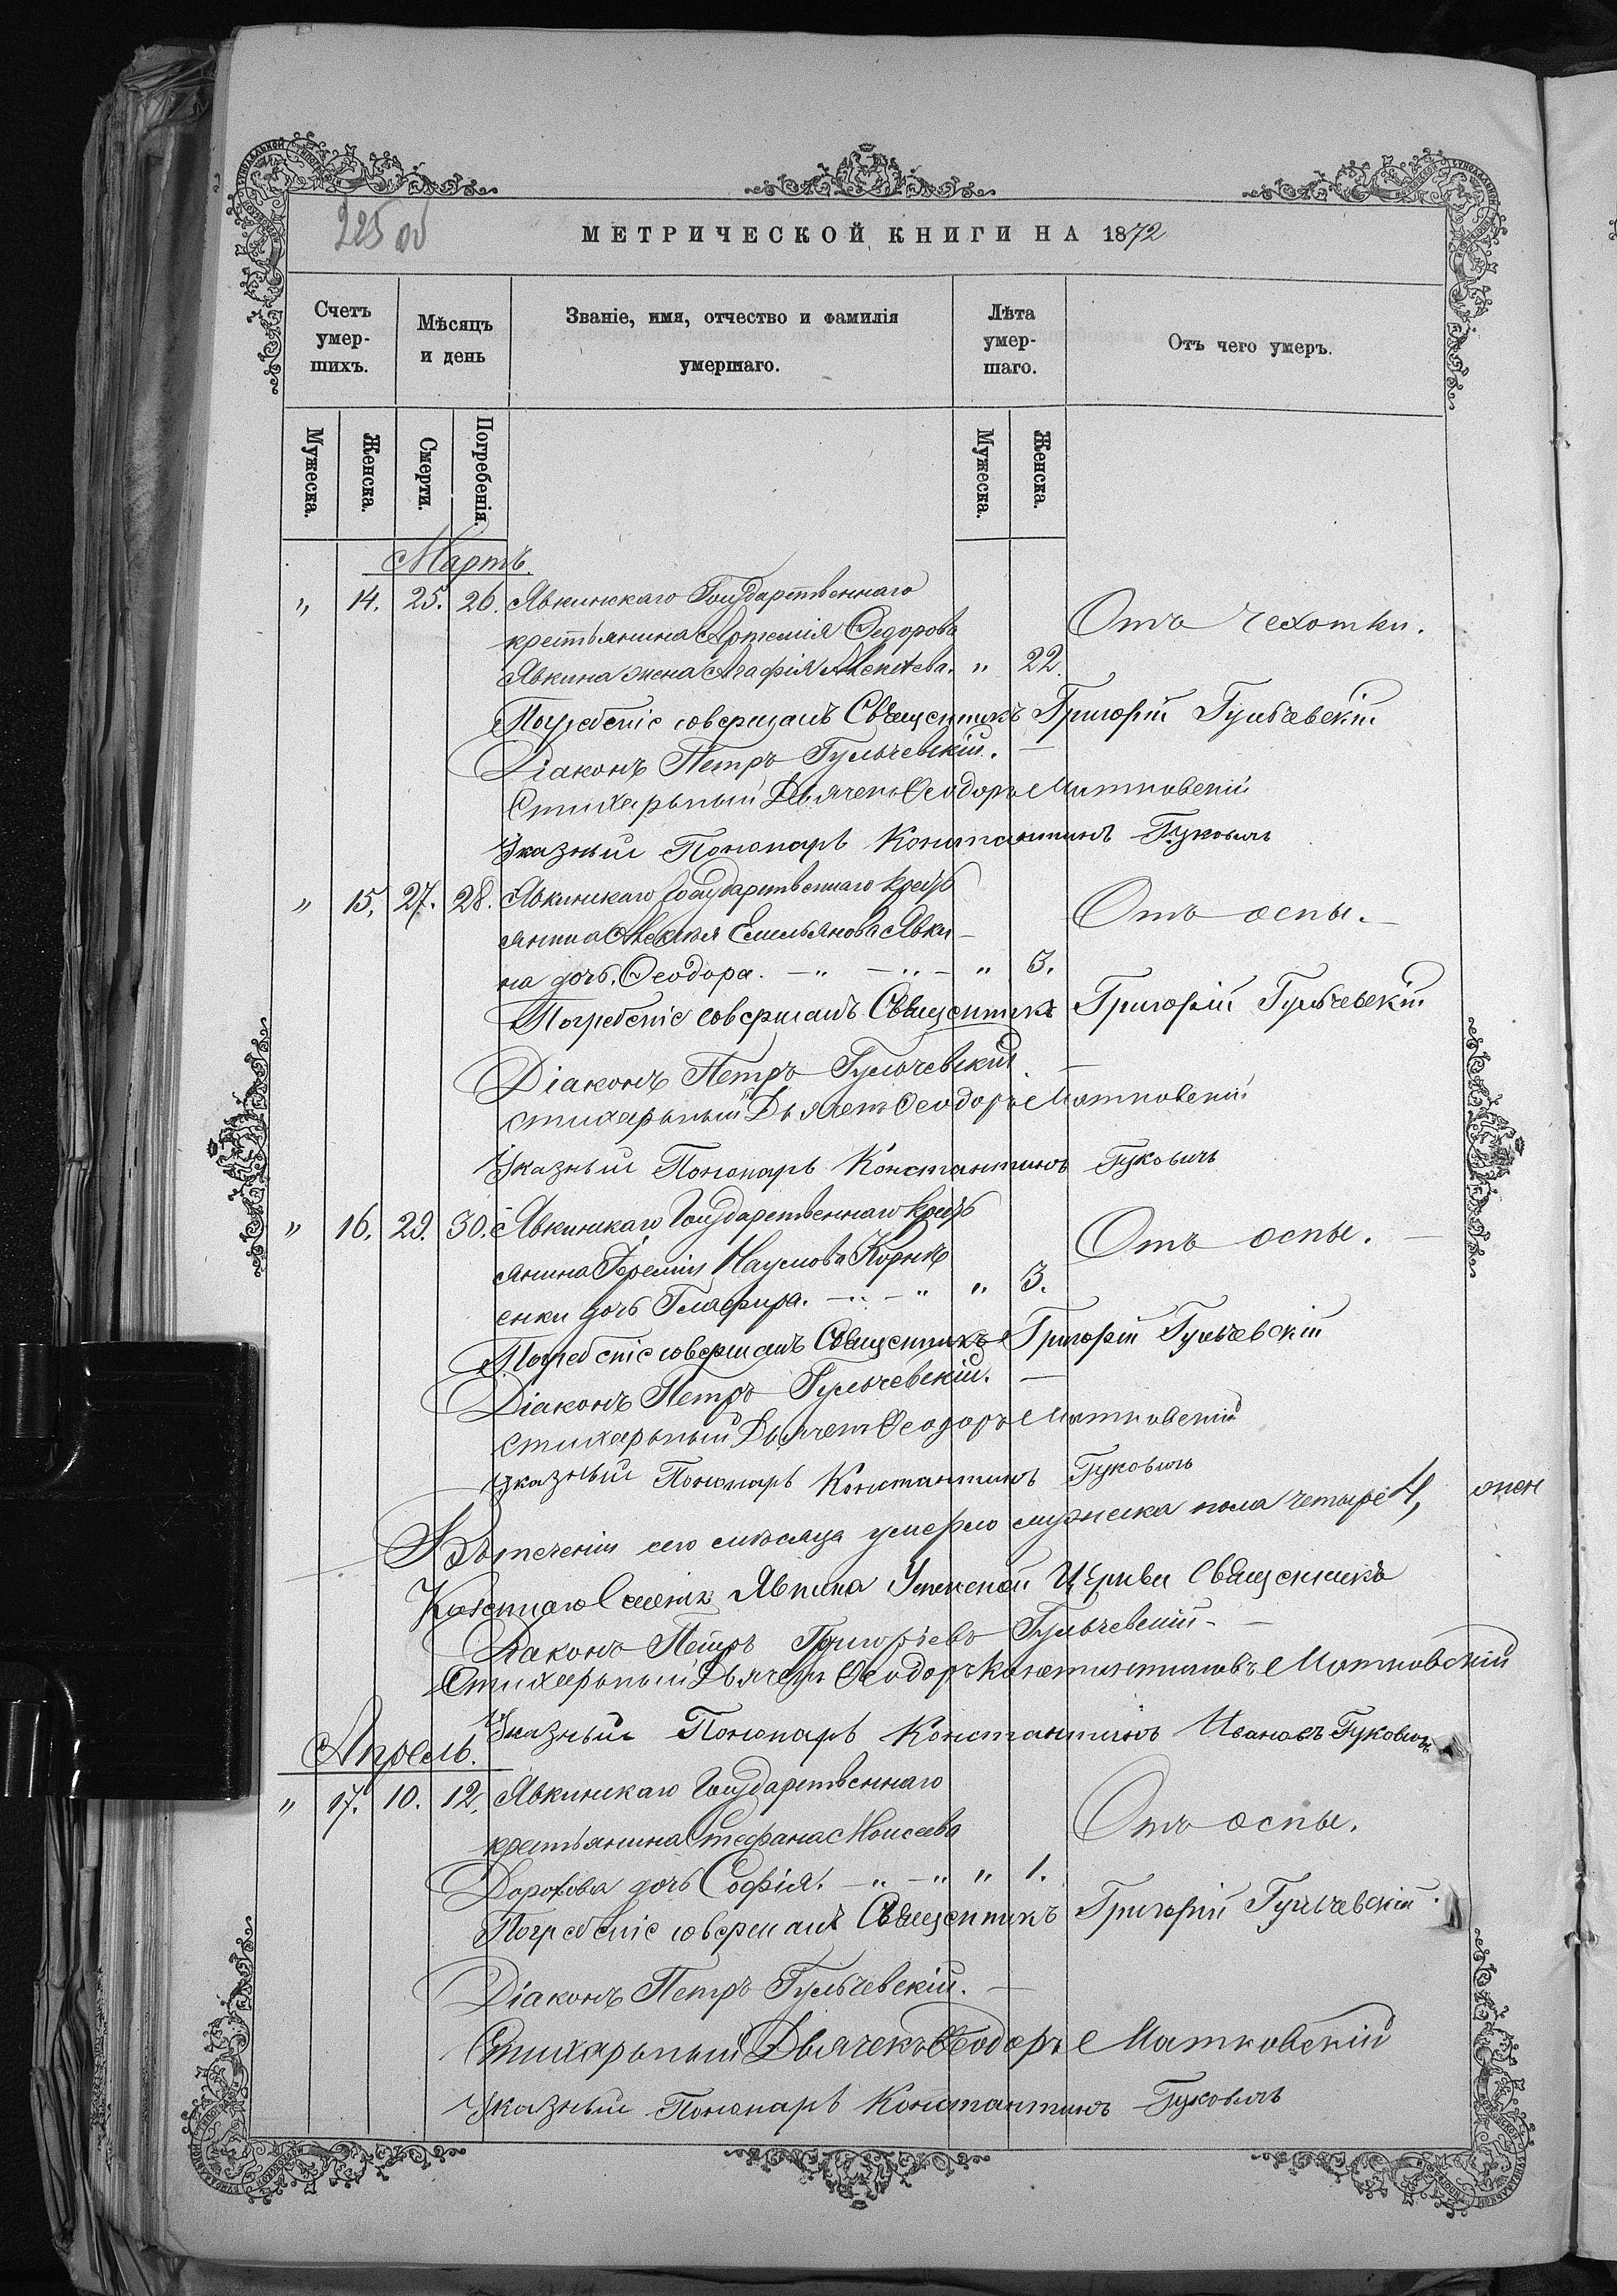 225 об
МЕТРИЧЕСКОЙ КНИГИ НА 1872
Счетъ умер-шихъ.
Мѣсяцъ и день
Званіе, имя, отчество и фамилія умершаго.
Лѣта умер-шаго.
Отъ чего умеръ.
Мужеска. Женска. Смерти. Погребенія. Мужеска. Женска.
Мартъ.
" 14. 25. 26. Явкинскаго Государственнаго
крестьянина Артемія Ѳедорова Отъ чехотки.
Явкина жена Агафія Алексѣева. " 22.
Погребеніе совершалъ Священникъ Григорій Гульчевскій
Діаконъ Петръ Гульчевскій. —
Стихарьный Дьячекъ Ѳеодоръ Матковскій
Указный Пономарь Константинъ Гуковичъ
" 15. 27. 28. Явкинскаго Государственнаго кресть
янина Алексѣя Емельянова Явки- Отъ оспы. —
на дочь Ѳеодора. — " — " — " 3.
Погребеніе совершалъ Священникъ Григорій Гульчевскій
Діаконъ Петръ Гульчевскій. —
стихарьный Дьячекъ Ѳеодоръ Матковскій
Указный Пономарь Константинъ Гуковичъ
" 16. 29. 30. Явкинскаго Государственнаго кресть
янина Наумова Отъ оспы. —
енки дочь Глафира. — " — " " 3.
Погребеніе совершалъ Священникъ Григорій Гульчевскій
Діаконъ Петръ Гульчевскій. —
стихарьный Дьячекъ Ѳеодоръ Матковскій
Указный Пономарь Константинъ Гуковичъ
Въ теченіи сего мѣсяца умерло мужеска пола четыре 4, жен
Явкина Церкви Священникъ
Діаконъ Петръ Григорьевъ Гульчевскій —
Стихарьный Дьячекъ Ѳеодоръ Константиновъ Матковскій
Указный Пономарь Константинъ Ивановъ Гуковичъ
Апрѣль.
" 17. 10. 12. Явкинскаго Государственнаго
крестьянина Стефана Моисеева Отъ оспы.
Дорохова дочь Софія. — " — " " 1.
Погребеніе совершалъ Священникъ Григорій Гульчевскій.
Діаконъ Петръ Гульчевскій. —
Стихарьный Дьячекъ Ѳеодоръ Матковскій
Указный Пономарь Константинъ Гуковичъ